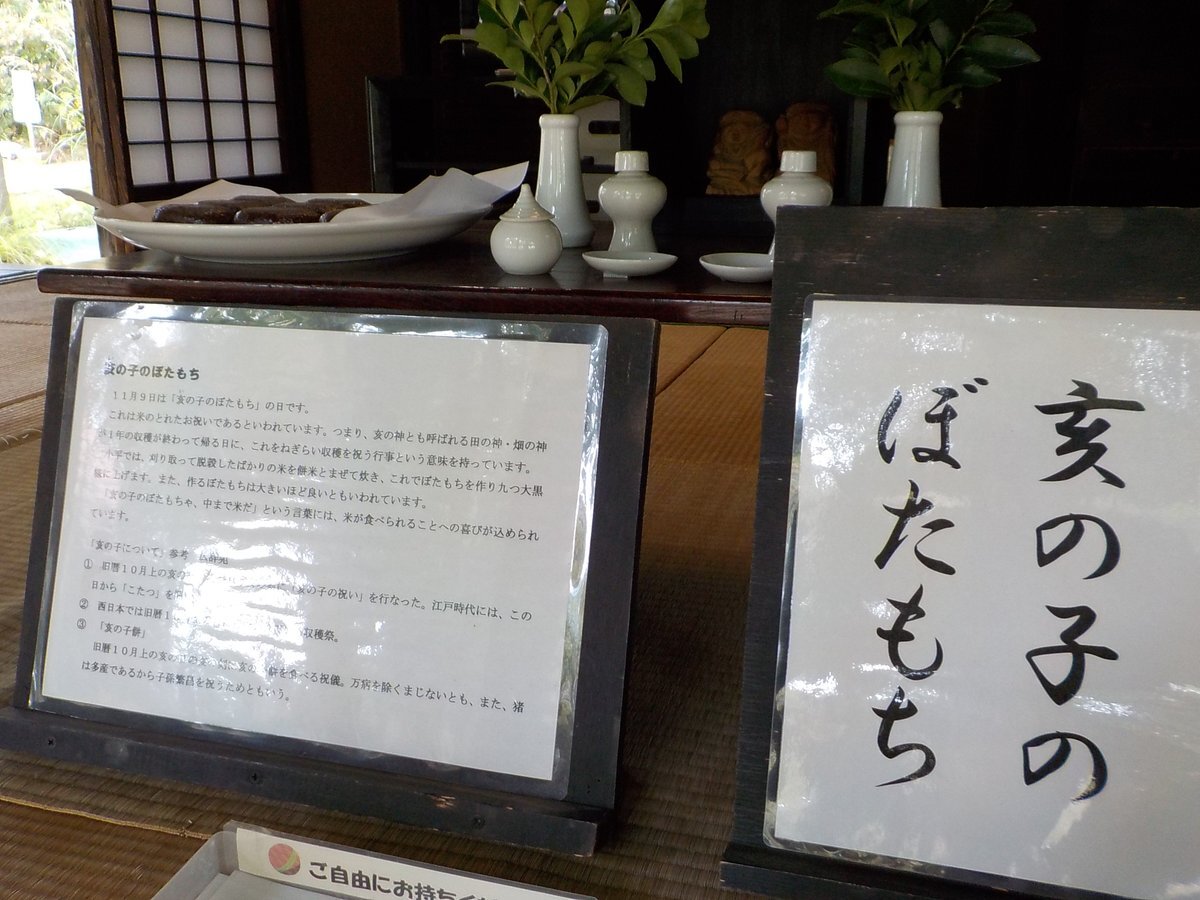 亥の子のぼたもち
11月9日は「亥の子のぼたもち」の日です。
これは米のとれたお祝いであるといわれています。つまり、亥の神とも呼ばれる田の神・畑の神
が1年の収穫が終わって帰る日に、これをねぎらい収穫を祝う行事という意味を持っています。
小平では、刈り取って脱穀したばかりの米を餅米とまぜて炊き、これでぼたもちを作り九つ大黒
様に上げます。また、作るぼたもちは大きいほど良いともいわれています。
「亥の子のぼたもちゃ、中まで米だ」という言葉には、米が食べられることへの喜びが込められ
ています。
「亥の子について」参考 広辞苑
① 旧暦10月上の亥の 「亥の子の祝い」を行なった。江戸時代には、この
日から「こたつ」を
② 西日本では旧暦1 収穫祭。
③ 「亥の子餅」
旧暦10月上の亥の日の亥の刻に亥の子餅を食べる祝儀。万病を除くまじないとも、また、猪
は多産であるから子孫繁昌を祝うためともいう。
亥の子の
ぼたもち
ご自由にお持ちく